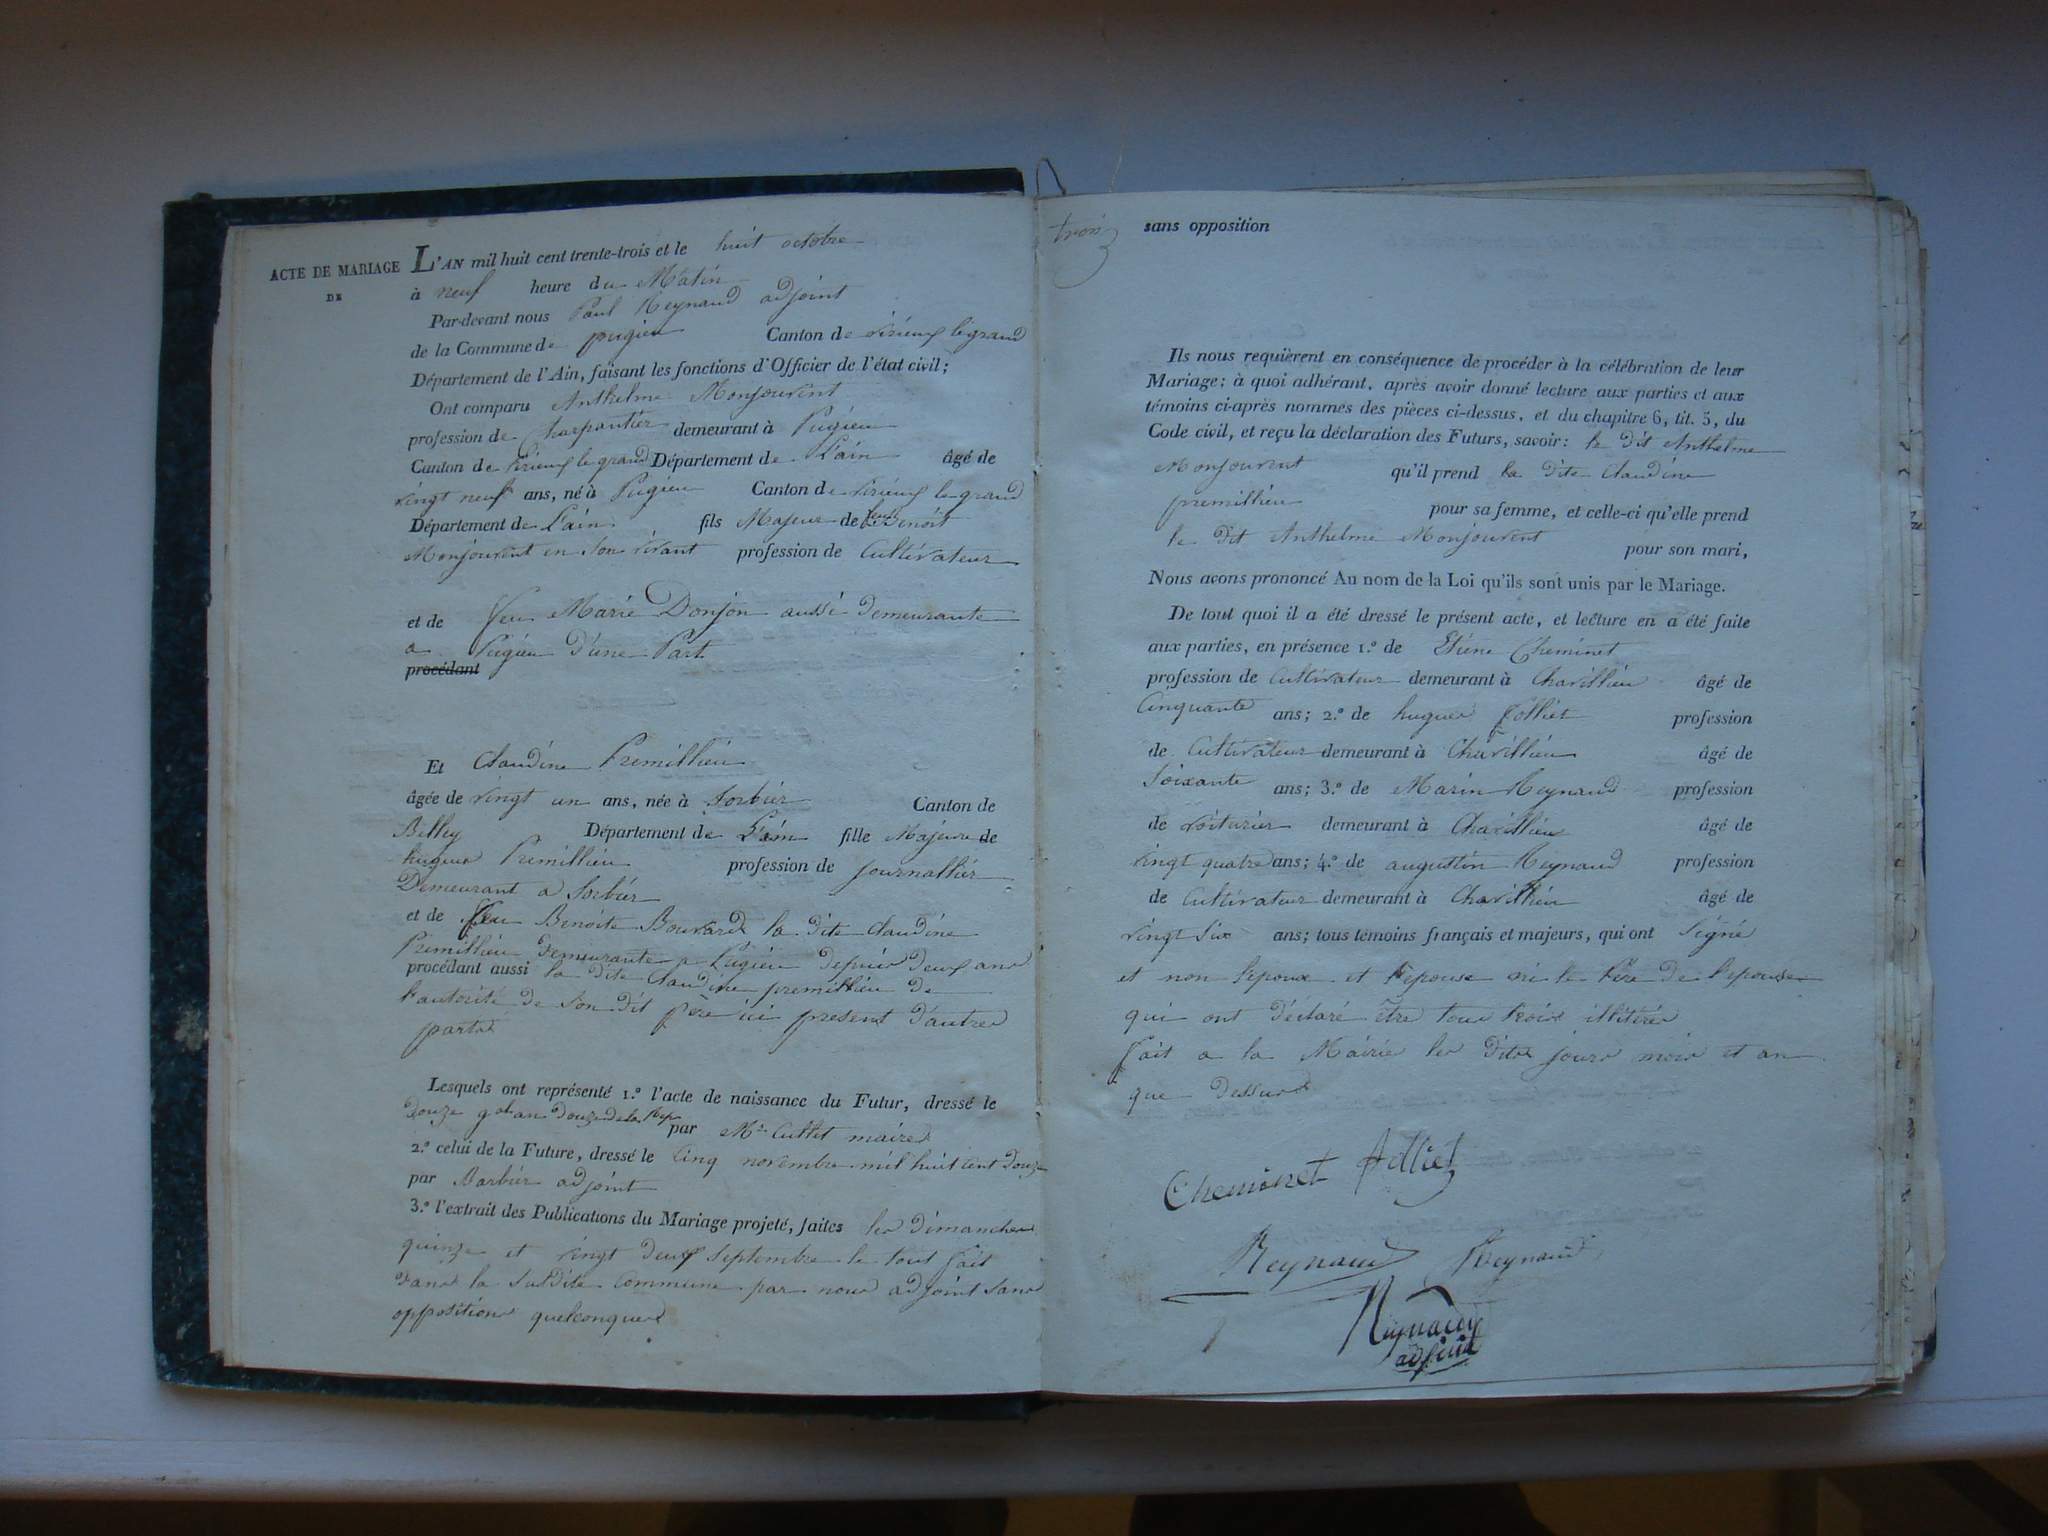 ACTE DE MARIAGE
DE
L'AN mil huit cent trente-trois et le huit octobre
à neuf heure du Matin
Par-devant nous Paul Reynaud adjoint
de la Commune de pugieu Canton de virieux le grand
Département de l'Ain, faisant les fonctions d'Officier de l'état civil;
Ont comparu Anthelme Monjouvent
profession de Charpantier demeurant à Pugieu
Canton de virieux le grand Département de L'ain âgé de
vingt neuf ans, né à Pugieu Canton de virieux le grand
Département de L'ain fils Majeur de feu Benoit
Monjouvent en Son vivant profession de Cultivateur
et de feu Marie Donjon aussi Demeurante
a Pugieu D'une Part
procédant
Et Claudine Premillieu
âgée de vingt un ans, née à Sorbier Canton de
Belley Département de L'ain fille Majeure de
hugues Premillieu profession de journallier
Demeurant a Sorbier
et de feu Benoite Bouvard la dite Claudine
Premillieu Demeurante a Pugieu Depuis Deux ans
procédant aussi la dite Claudine premillieu De
l'autorité De Son Dit père ici present D'autres
parts
Lesquels ont représenté 1.º l'acte de naissance du Futur, dressé le
Douze an Douze de la Rep par Mr Cullet maire
2.º celui de la Future, dressé le Cinq novembre mil huit cent Douze
par Barbier adjoint
3.º l'extrait des Publications du Mariage projeté, faites les Dimanches
quinze et vingt Deux Septembre le tout fait
Dans la Susdite Commune par nous adjoint Sans
oppositions quelconques
trois
sans opposition
Ils nous requièrent en conséquence de procéder à la célébration de leur
Mariage; à quoi adhérant, après avoir donné lecture aux parties et aux
témoins ci-après nommés des pièces ci-dessus, et du chapitre 6, tit. 5, du
Code civil, et reçu la déclaration des Futurs, savoir: le Dit Anthelme
Monjouvent qu'il prend la Dite Claudine
premillieu pour sa femme, et celle-ci qu'elle prend
le Dit Anthelme Monjouvent pour son mari,
Nous avons prononcé Au nom de la Loi qu'ils sont unis par le Mariage.
De tout quoi il a été dressé le présent acte, et lecture en a été faite
aux parties, en présence 1.º de Etiene Cheminet
profession de Cultivateur demeurant à Chavillieu âgé de
Cinquante ans; 2.º de hugues Jolliet profession
de Cultivateur demeurant à Chavillieu âgé de
Soixante ans; 3.º de Marin Reynaud profession
de voiturier demeurant à Chavillieu âgé de
vingt quatre ans; 4.º de augustin Reynaud profession
de Cultivateur demeurant à Chavillieu âgé de
vingt Six ans; tous témoins français et majeurs, qui ont Signé
et non l'epoux et l'epouse ni le Père De l'epouse
qui ont Déclaré être tous trois illitérés
fait a la Mairie les Dits jours mois et an
que Dessus
Cheminet Jolliet
Reynaud Reynaud
Reynaud
adjoint